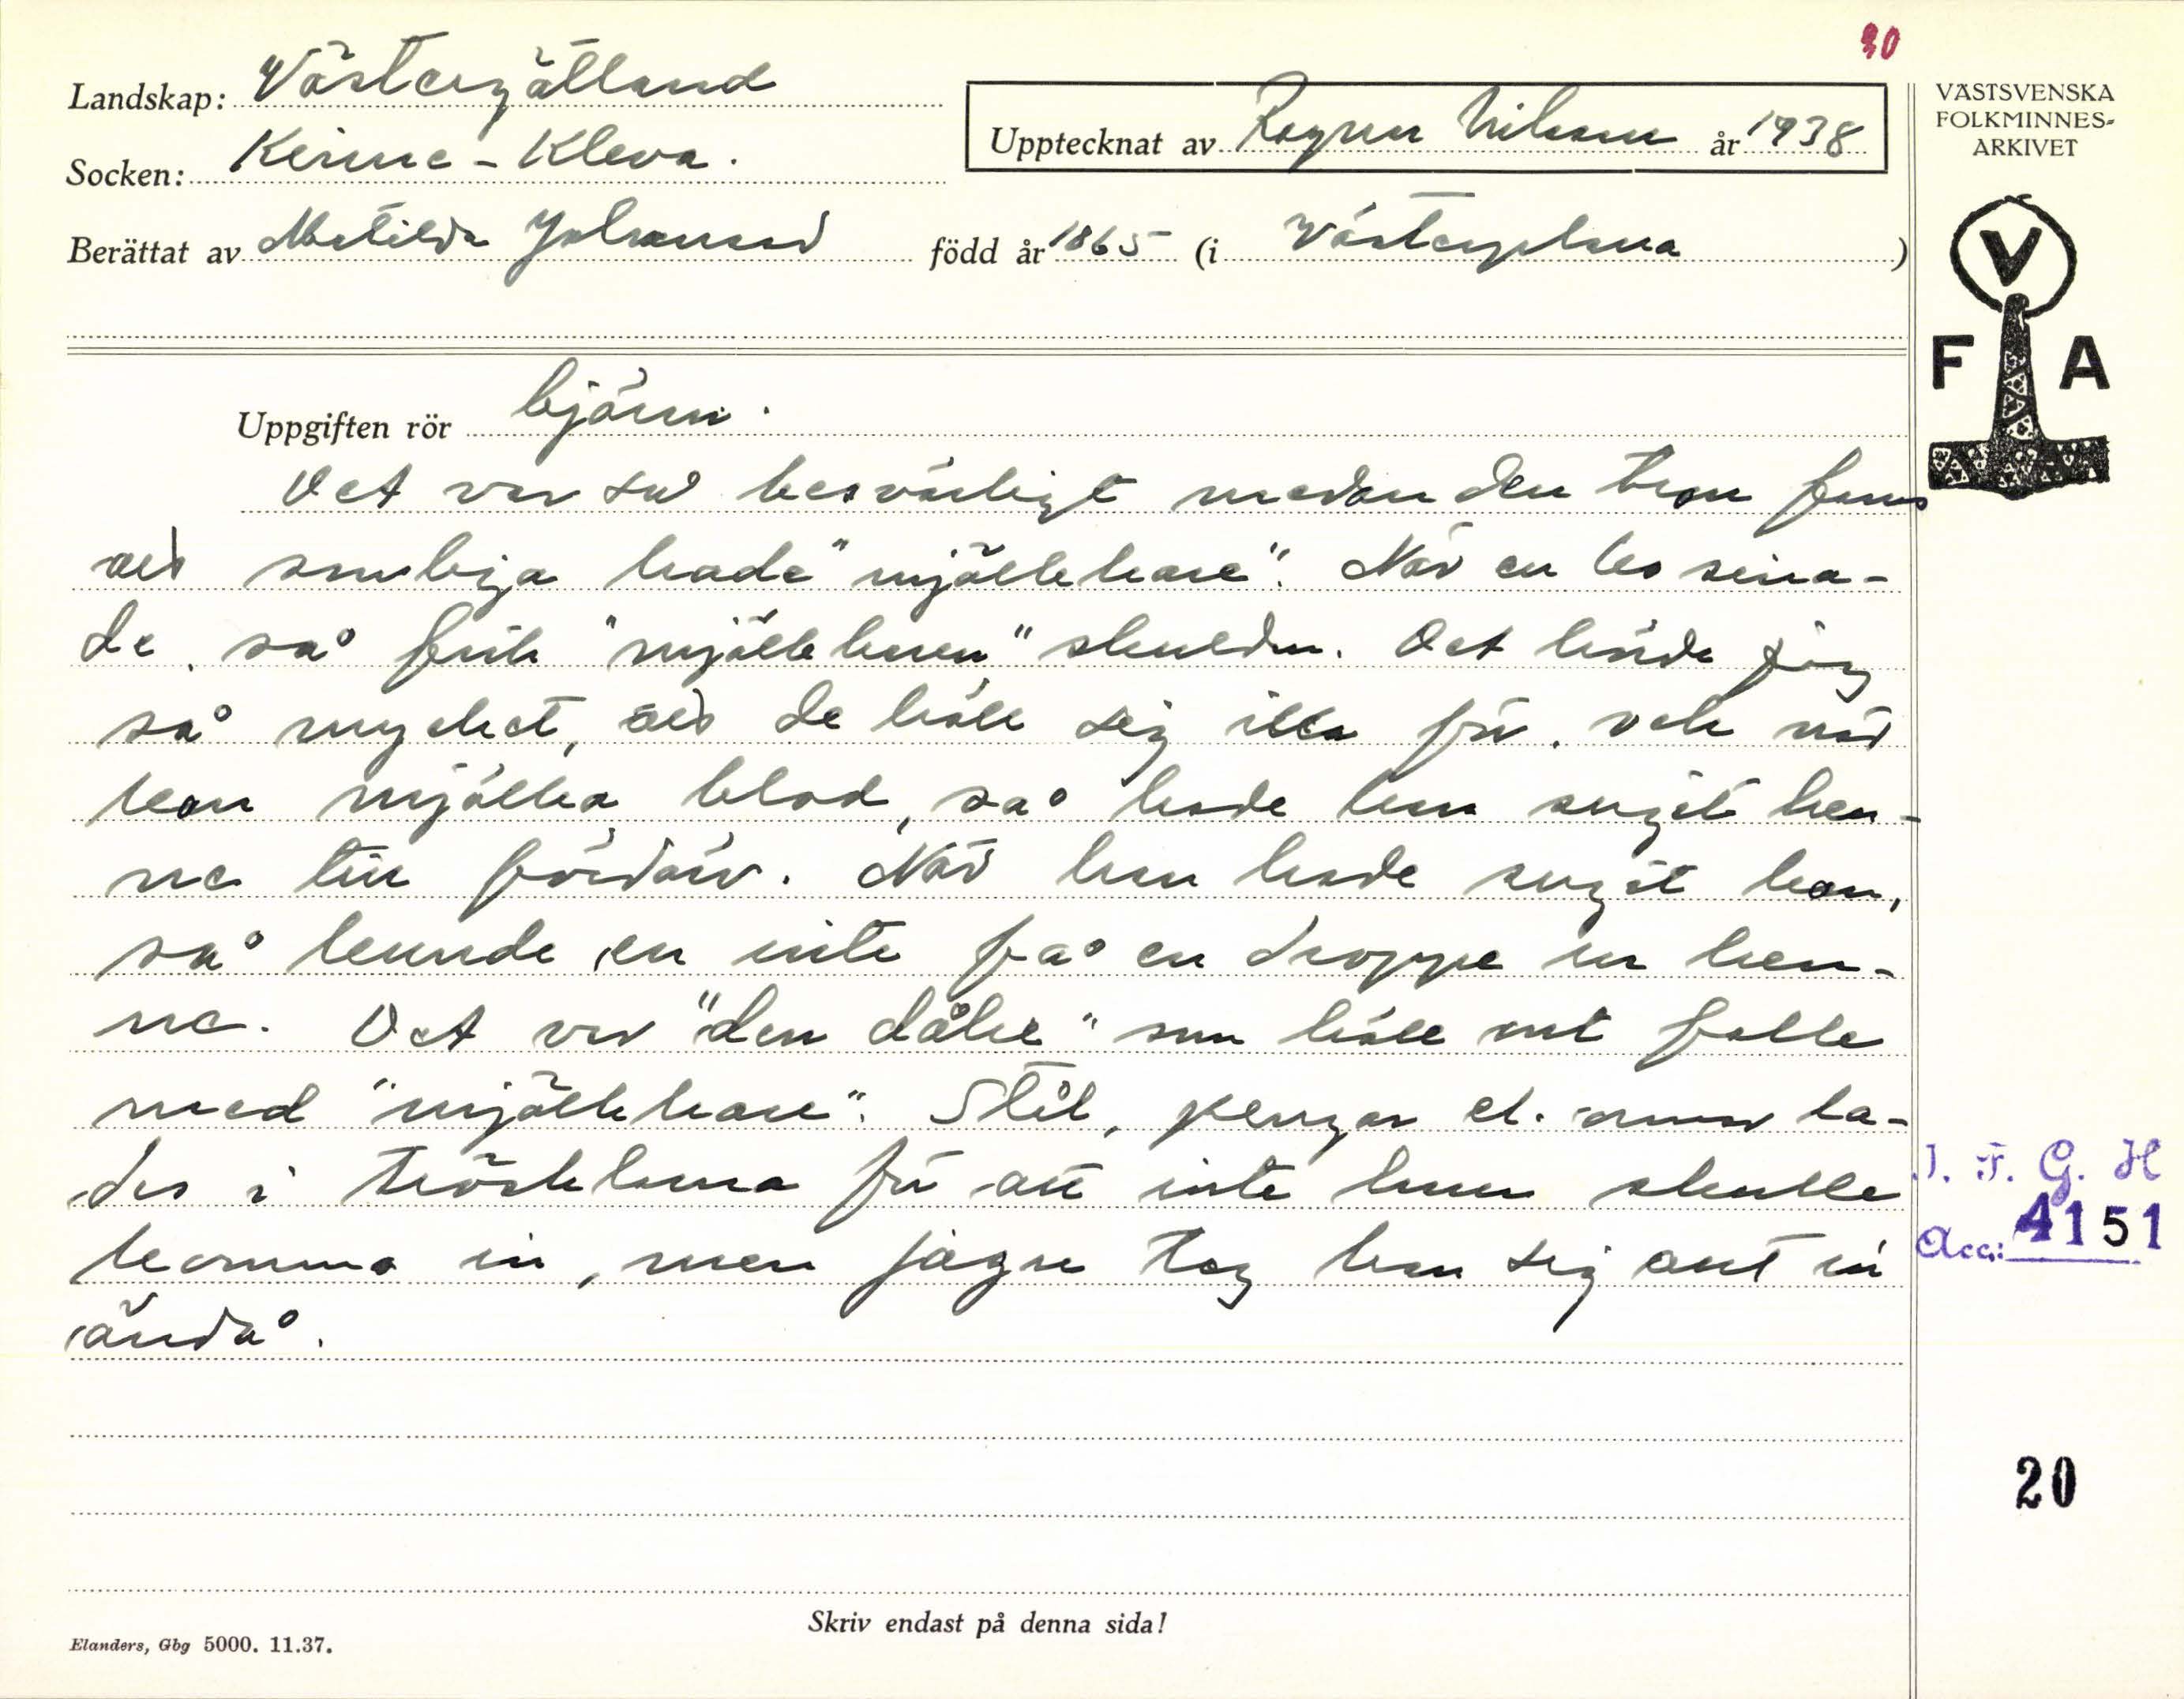 30
Landskap: Västergötland
Socken: Kinne-Kleva.
Upptecknat av Ragnar Nilsson år 1938
Berättat av Matilda Johansson född år 1865 (i Västerplana)
VÄSTSVENSKA
FOLKMINNES-
ARKIVET
V
F A
Uppgiften rör bjärn.
Det var så besvärligt medan den tron fanns
att somliga hade "mjölkhare". När en ko sina-
de, så fick "mjölkharen" skulden. Det hände sig
så mycket, att de höll sig illa för, och når
kon mjölka blod, så hade han sugit hen-
ne till fördärv. När han hade sugit kon,
så kunde en inte få en droppe ur hen-
ne. Det var "den dåke" som höll ont folk
med "mjölkhare". Stål, pengar el. annat la-
des i trösklarna för att inte haren skulle
komma in, men jagu tog han sig ant in
ändå.
I. F. G. H
Acc: 4151
20
Skriv endast på denna sida!
Elanders, Gbg 5000. 11.37.